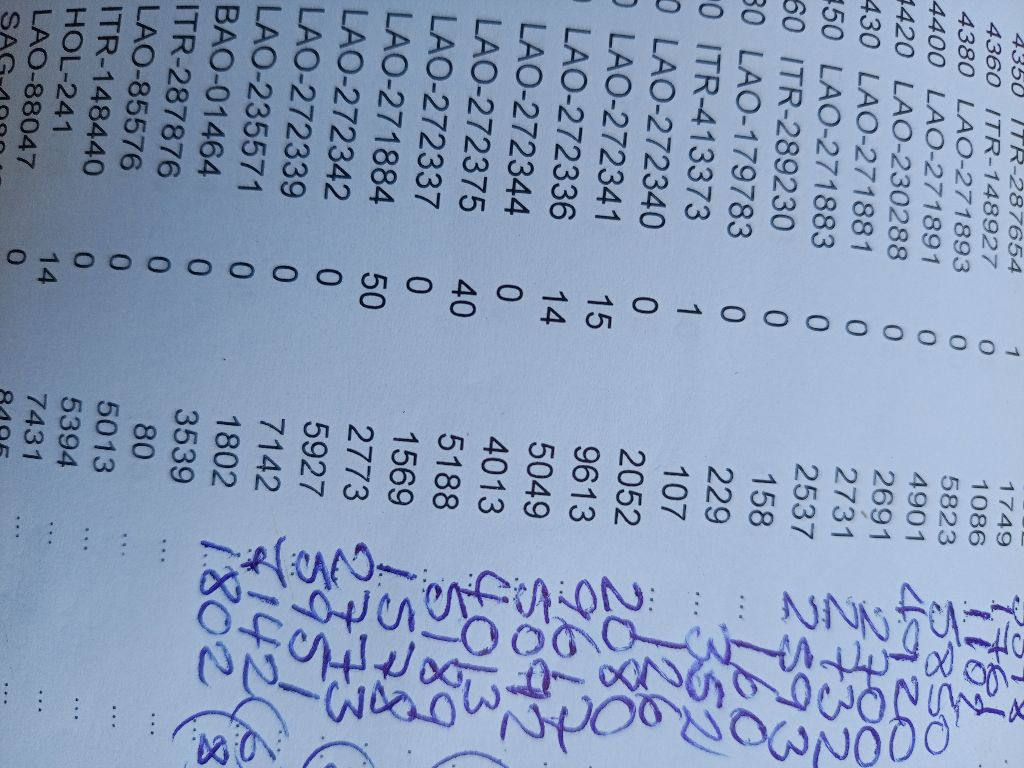 4350 ITR-287654 1 1749 1761
4360 ITR-148927 0 1086
4380 LAO-271893 0 5823 5850
4400 LAO-271891 0 4901 4920
4420 LAO-230288 0 2691 2700
4430 LAO-271881 0 2731 2732
450 LAO-271883 0 2537 2593
60 ITR-289230 0 158 160
80 LAO-179783 0 229 ... 352
0 ITR-413373 1 107 ... 126
0 LAO-272340 0 2052 ... 2080
0 LAO-272341 15 9613 9617
LAO-272336 14 5049 5092
LAO-272344 0 4013 4013
LAO-272375 40 5188 5189
LAO-272337 0 1569 1578
LAO-271884 50 2773 2773
LAO-272342 0 5927 5951
LAO-272339 0 7142 7142 (6
LAO-235571 0 1802 1802 (8
BAO-01464 0 3539 ... ...
ITR-287876 0 80 ... ...
LAO-85576 0 5013 ... ...
ITR-148440 0 5394 ... ...
HOL-241 14 7431 ... ...
LAO-88047 0 8495